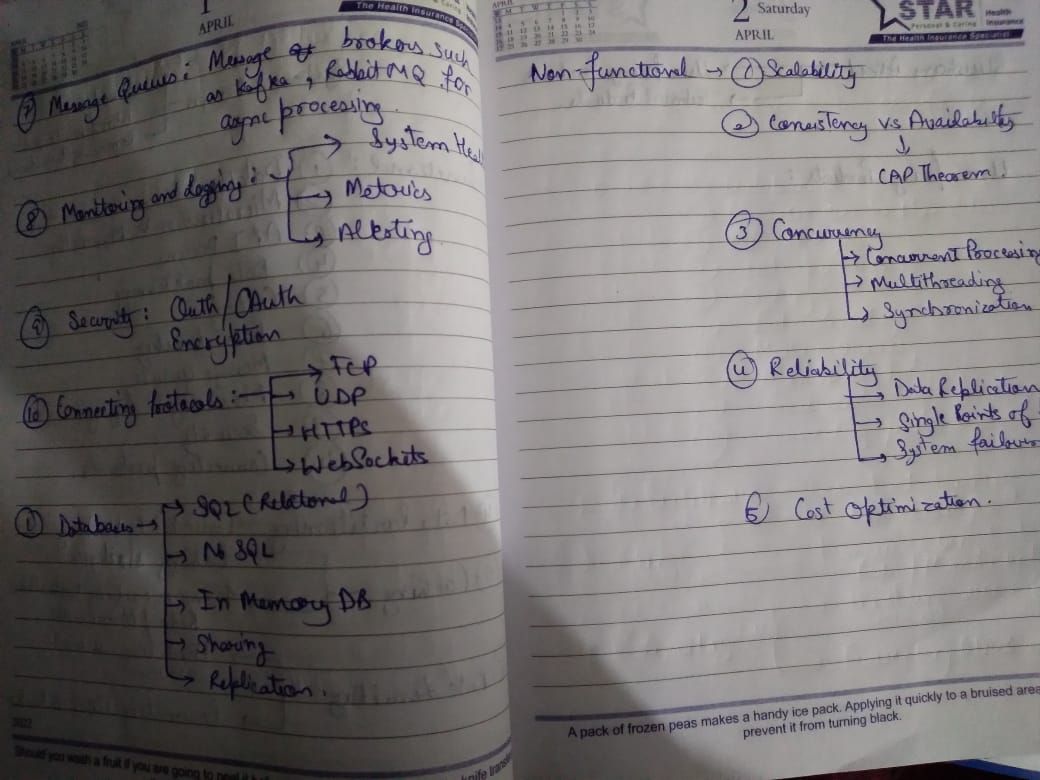 1
APRIL
The Health Insurance
⑦ Message Queues : Message brokers such
as Kafka , Rabbit MQ for
async processing.
⑧ Monitoring and Logging :
→ System Heal
→ Metrics
→ Alerting
⑨ Security : Auth/OAuth
Encryption
⑩ Connecting Protocols :
→ TCP
→ UDP
→ HTTPS
→ WebSockets
⑪ Databases →
→ SQL (Relational)
→ No SQL
→ In Memory DB
→ Sharing
→ Replication.
2022
Should you wash a fruit if you are going to peel it
knife
APRIL
2 Saturday
APRIL
STAR Health Insurance
Personal & Caring
The Health Insurance Specialist
Non-functional → ① Scalability
② Consistency vs Availability
↓
CAP Theorem.
③ Concurrency
→ Concurrent Processing
→ Multithreading
→ Synchronization
④ Reliability
→ Data Replication
→ Single Points of
→ System failover
⑤ Cost Optimization.
A pack of frozen peas makes a handy ice pack. Applying it quickly to a bruised area
prevent it from turning black.